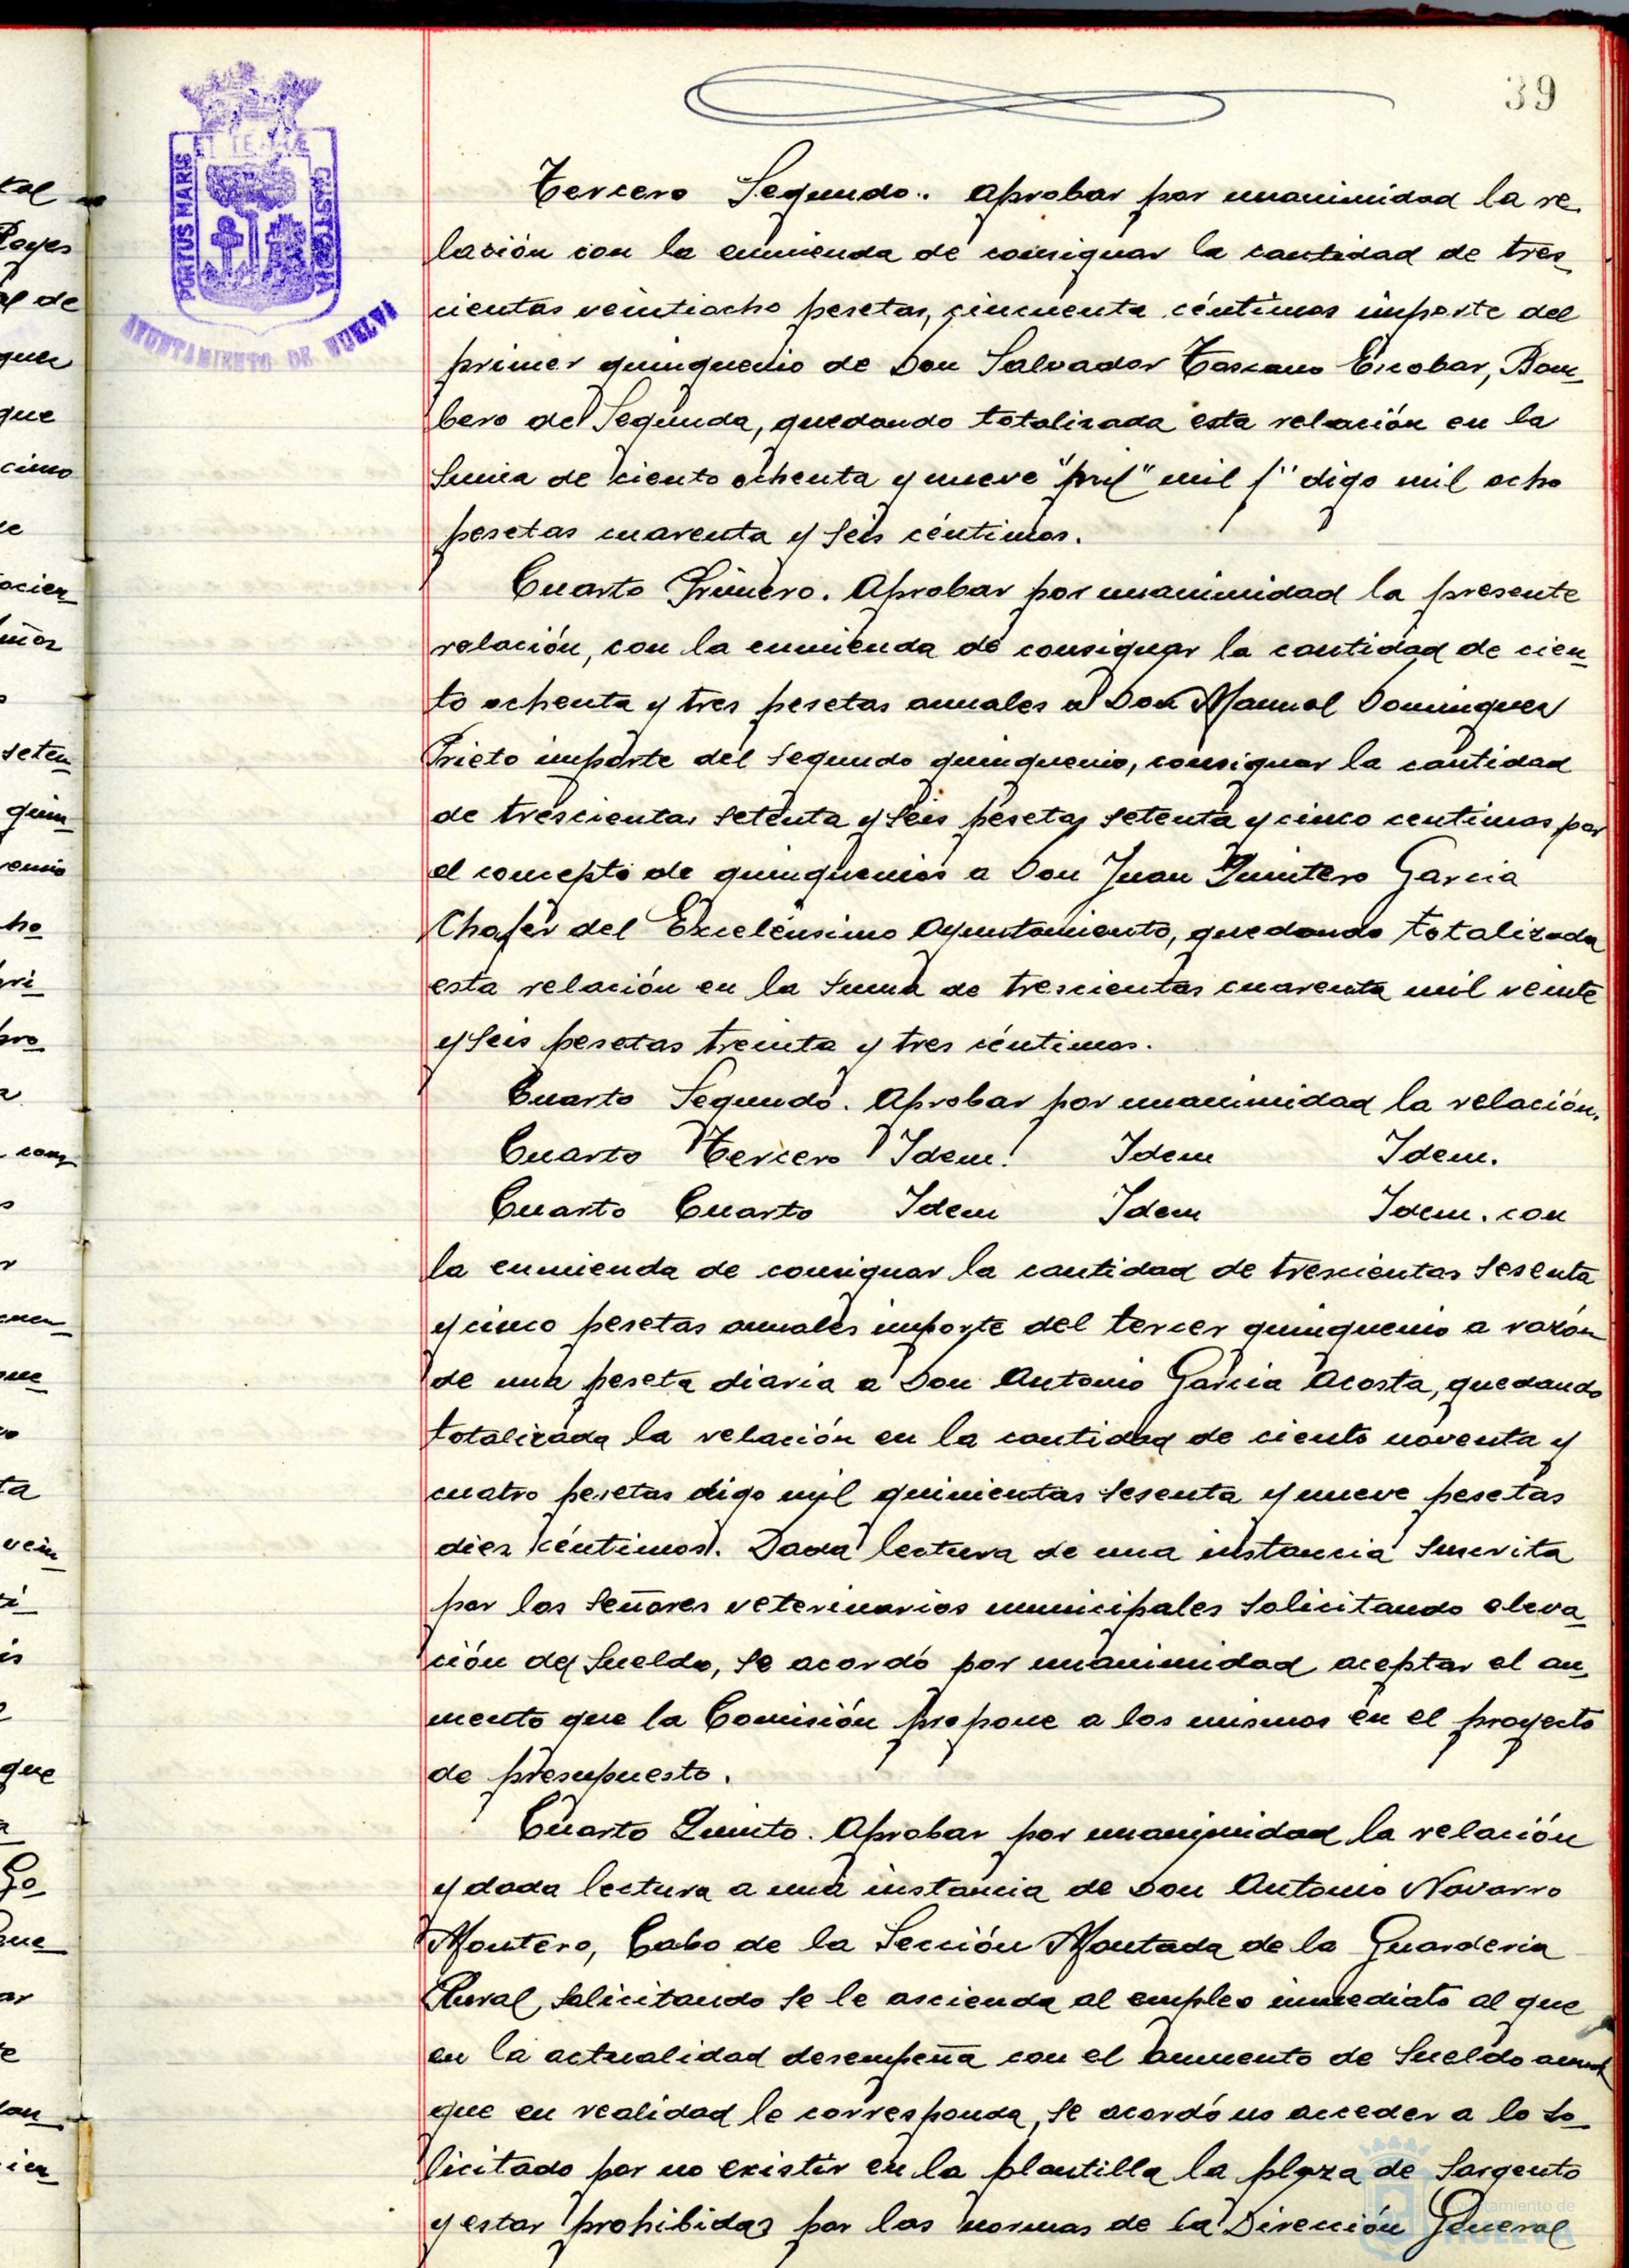 39
PORTUS MARIS ET TERRAE CUSTODIA
AYUNTAMIENTO DE HUELVA
Tercero Segundo. Aprobar por unanimidad la re-
lación con la enmienda de consignar la cantidad de tres-
cientas veintiocho pesetas, cincuenta céntimos importe del
primer quinquenio de Don Salvador Toscano Escobar, Bom-
bero de Segunda, quedando totalizada esta relación en la
suma de ciento ochenta y nueve "mil" mil /" digo mil ocho
pesetas cuarenta y seis céntimos.
Cuarto Primero. Aprobar por unanimidad la presente
relación, con la enmienda de consignar la cantidad de cien-
to ochenta y tres pesetas anuales a Don Manuel Dominguez
Prieto importe del segundo quinquenio, consignar la cantidad
de trescientas setenta y seis pesetas setenta y cinco centimos por
el concepto de quinquenios a Don Juan Quintero Garcia
Chofer del Excelensimo Ayuntamiento, quedando totalizada
esta relación en la suma de trescientas cuarenta mil veinte
y seis pesetas treinta y tres céntimos.
Cuarto Segundo. Aprobar por unanimidad la relación.
Cuarto Tercero Idem. Idem Idem.
Cuarto Cuarto Idem Idem Idem. con
la enmienda de consignar la cantidad de trescientas sesenta
y cinco pesetas anuales importe del tercer quinquenio a razón
de una peseta diaria a Don Antonio Garcia Acosta, quedando
totalizada la relación en la cantidad de ciento noventa y
cuatro pesetas digo mil quinientas sesenta y nueve pesetas
diez céntimos. Dada lectura de una instancia suscrita
por los señores veterinarios municipales solicitando eleva-
ción de sueldo, se acordó por unanimidad aceptar el au-
mento que la Comisión propone a los mismos en el proyecto
de presupuesto.
Cuarto Quinto. Aprobar por unanimidad la relación
y dada lectura a una instancia de Don Antonio Navarro
Montero, Cabo de la Sección Montada de la Guarderia
Rural, solicitando se le ascienda al empleo inmediato al que
en la actualidad desempeña con el aumento de sueldo anual
que en realidad le corresponda, se acordó no acceder a lo so-
licitado por no existir en la plantilla la plaza de Sargento
y estar prohibidas por las normas de la Dirección General
Ayuntamiento de
HUELVA